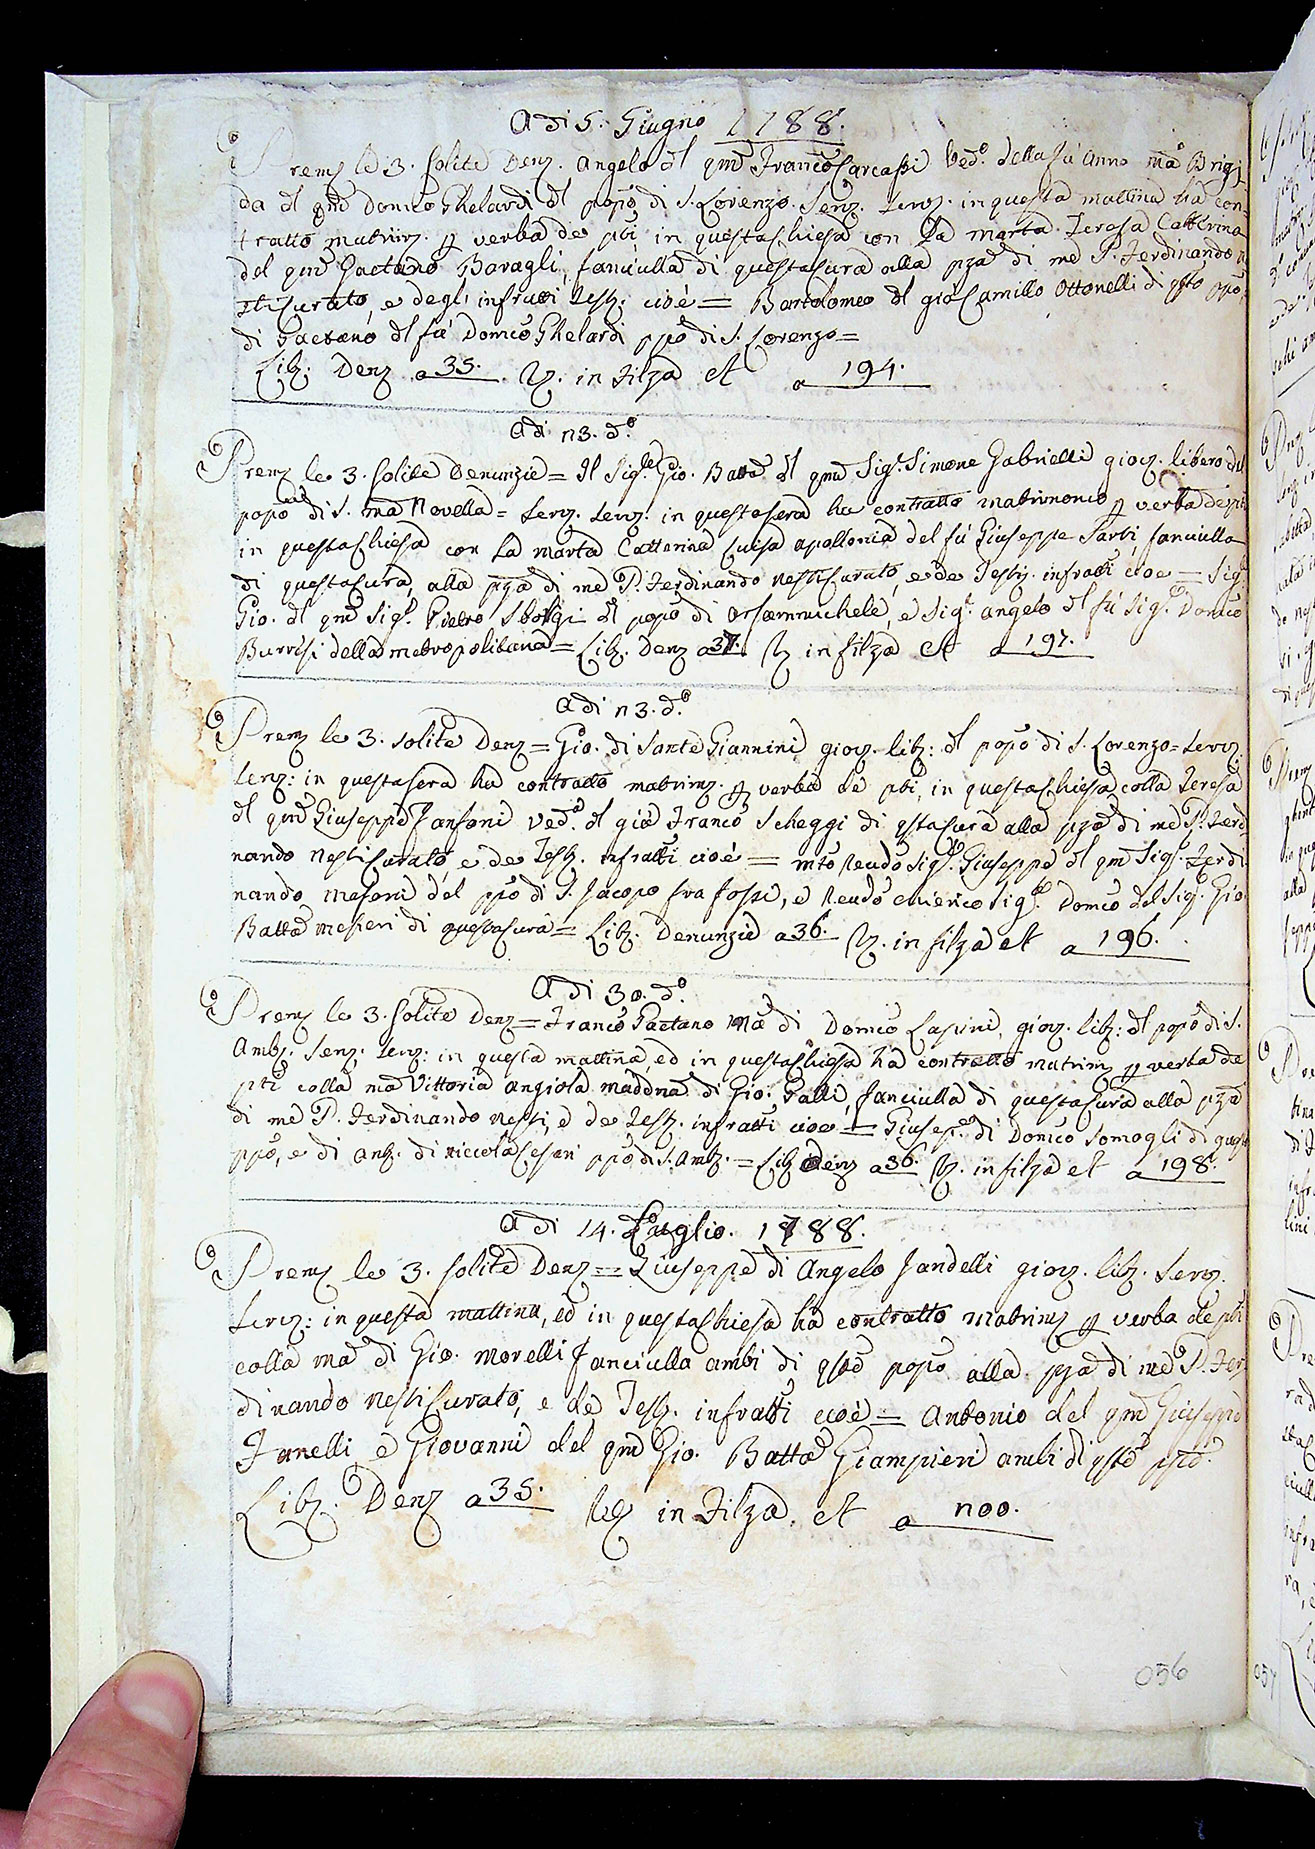 A di 5. Giugno 1788.
Prem. le 3. solite Denz. Angelo dl qm Franco Carcassi Vedo. della fù Anna Ma Brigi
da dl qm Domco Ghelardi dl popo di S. Lorenzo. Serv. Serv. in questa mattina ha con=
tratto matrim. p verba de pti in questa Chiesa con La Maria Teresa Catterina
del qm Gaetano Baragli, fanciulla di questa Cura alla pza di me P. Ferdinando
Curato, e degl' infratti Test. cioè = Bartolomeo dl già Camillo Ottonelli di qsto ppo,
di Gaetano dl fù Domco Ghelardi ppo di S. Lorenzo =
Lib. Denz a 35. in Filza et a 194.
A di 13. do.
Prem le 3. solite Denunzie = Il Sigre Gio. Batta dl qm Sigr. Simone Gabrielli giov. libero del
popo di S. Ma Novella = Serv. Serv. in questa sera ha contratto matrimonio p verba de pti
in questa Chiesa con La Maria Catterina Luisa Apollonia del fù Giuseppe Sarti, fanciulla
di questa Cura, alla pza di me P. Ferdinando Nesti Curato, e de Testi. infratti cioe = Sigr.
Gio. dl qm Sigr. Pietro dl popo di Orsanmichele, e Sigr. Angelo dl fù Sigr. Domco
Burrisi della metropolitana = Lib. Denz a 37. in filza et a 197.
A di 13. do.
Prem le 3. solite Denz = Gio. di Sante Giannini giov. lib: dl popo di S. Lorenzo = Serv.
Serv: in questa sera ha contratto matrim. p verba de pti, in questa Chiesa colla Teresa
dl qm Giuseppe Fansoni Veda. dl già Franco Scheggi di qsta Cura alla pza di me P. Ferdi
nando Nesti Curato, e de Test. infratti cioè = mto Revdo Sigr. Giuseppe dl qm Sigr. Ferdi
nando Masoni del ppo di S. Jacopo fra Fossi, e Revdo Chierico Sigr. Domco del Sigr. Gio
Batta Mesieri di questa Cura = Lib. Denunzie a 36. in filza et a 196.
A di 30. do.
Prem le 3. solite Denz = Franco Gaetano Ma di Domco Lapini, giov. lib: dl popo di S.
Amb. Serv: Serv: in questa mattina, ed in questa Chiesa ha contratto matrim p verba de
pti colla Ma Vittoria Angiola Maddna di Gio: Galli, fanciulla di questa Cura alla pza
di me P. Ferdinando Nesti, e de Test. infratti cioe = Giusep.e di Domco Somogli di questo
ppo, e di Ant. di Niccola Cesari ppo di S. Amb. = Lib Denz a 36. in filza et a 198.
A di 14. Luglio. 1788.
Prem le 3. solite Denz = Giuseppe di Angelo Jandelli giov. lib. Serv.
Serv: in questa mattina, ed in questa Chiesa ha contratto matrim p verba de pti
colla Ma di Gio. Morelli Fanciulla ambi di qsto popo alla pza di me P. Fer
dinando Nesti Curato, e de Test. infratti cioè = Antonio del qm Giuseppe
Fanelli e Giovanni del qm Gio. Batta Giampieri ambi di qsto ppo.
Lib. Denz a 35. in Filza, et a 200.
056
057